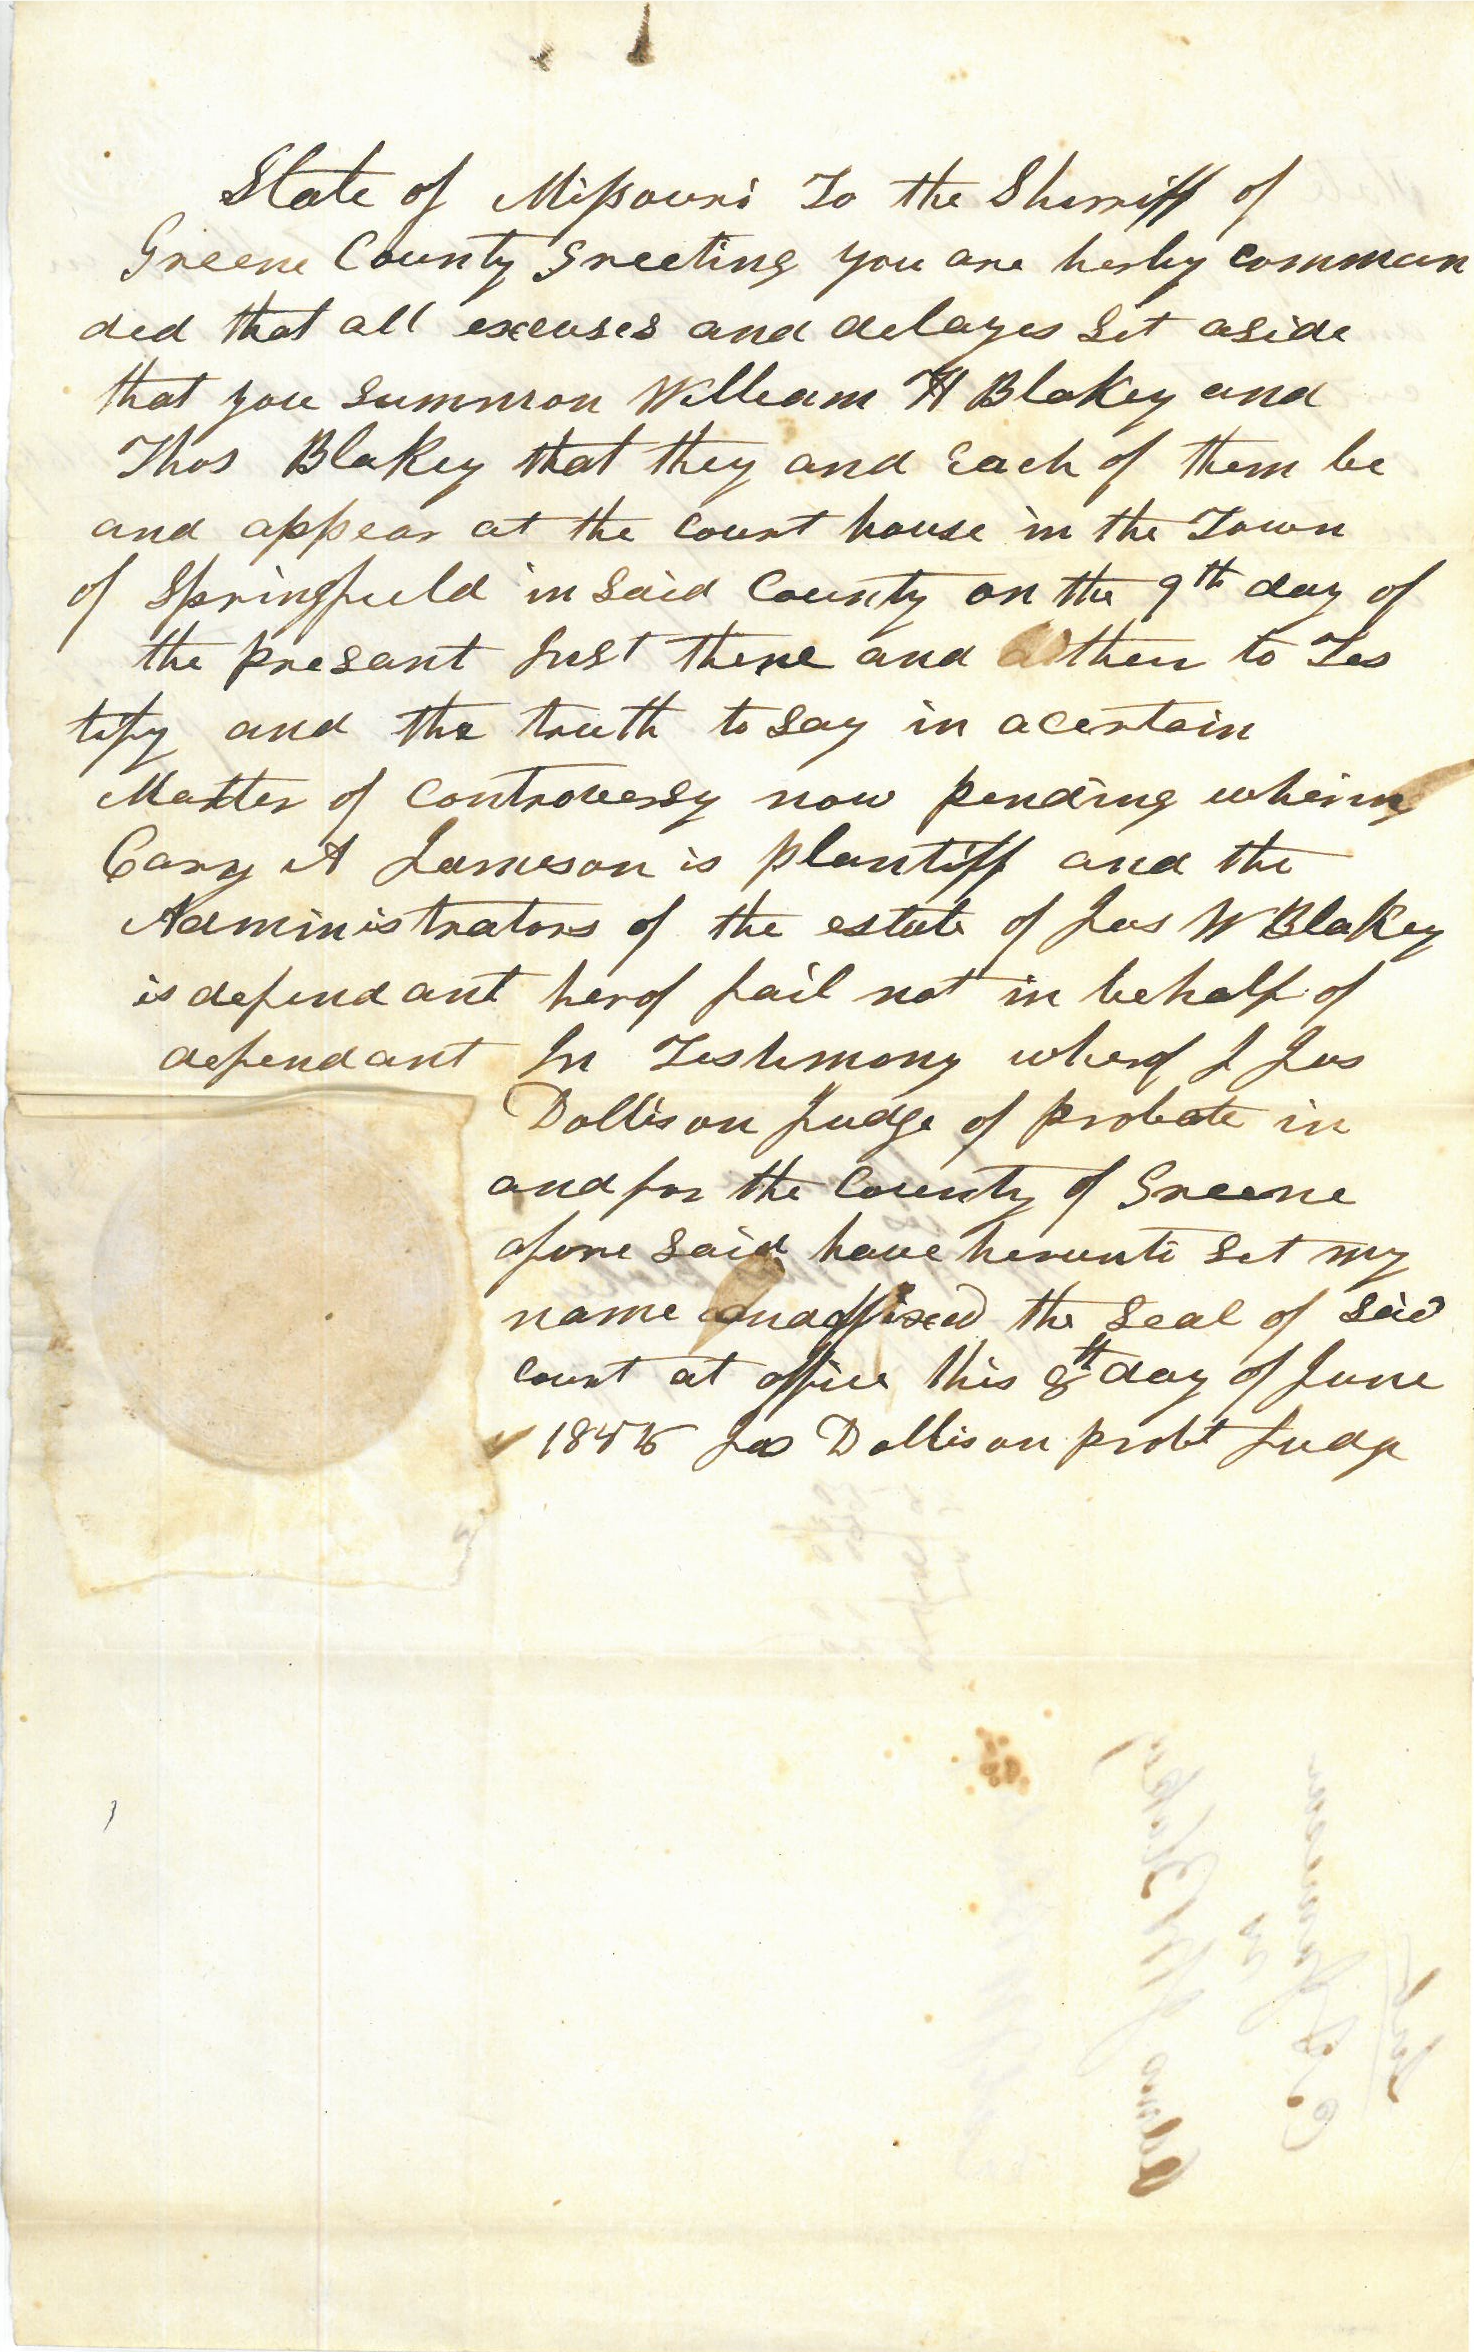 State of Missouri To the Sherriff of
Greene County Greeting you are herby comman
ded that all excuses and delayes set aside
that you summon William H Blakey and
Thos Blakey that they and each of them be
and appear at the court house in the Town
of Springfield in said County on the 9th day of
the presant Inst there and then to Tes
tify and the truth to say in a certain
Matter of controversy now pending wherin
Cary A Jameson is plantiff and the
Administrators of the estate of Jas W Blakey
is defendant herof fail not in behalf of
defendant In Testimony wherof I Jas
Dollison Judge of probate in
and for the County of Greene
afore said have herunto set my
name and affixed the seal of said
court at office this 8th day of June
Jas Dollison probt Judge